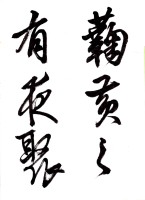 鞠黄之
有夜聚